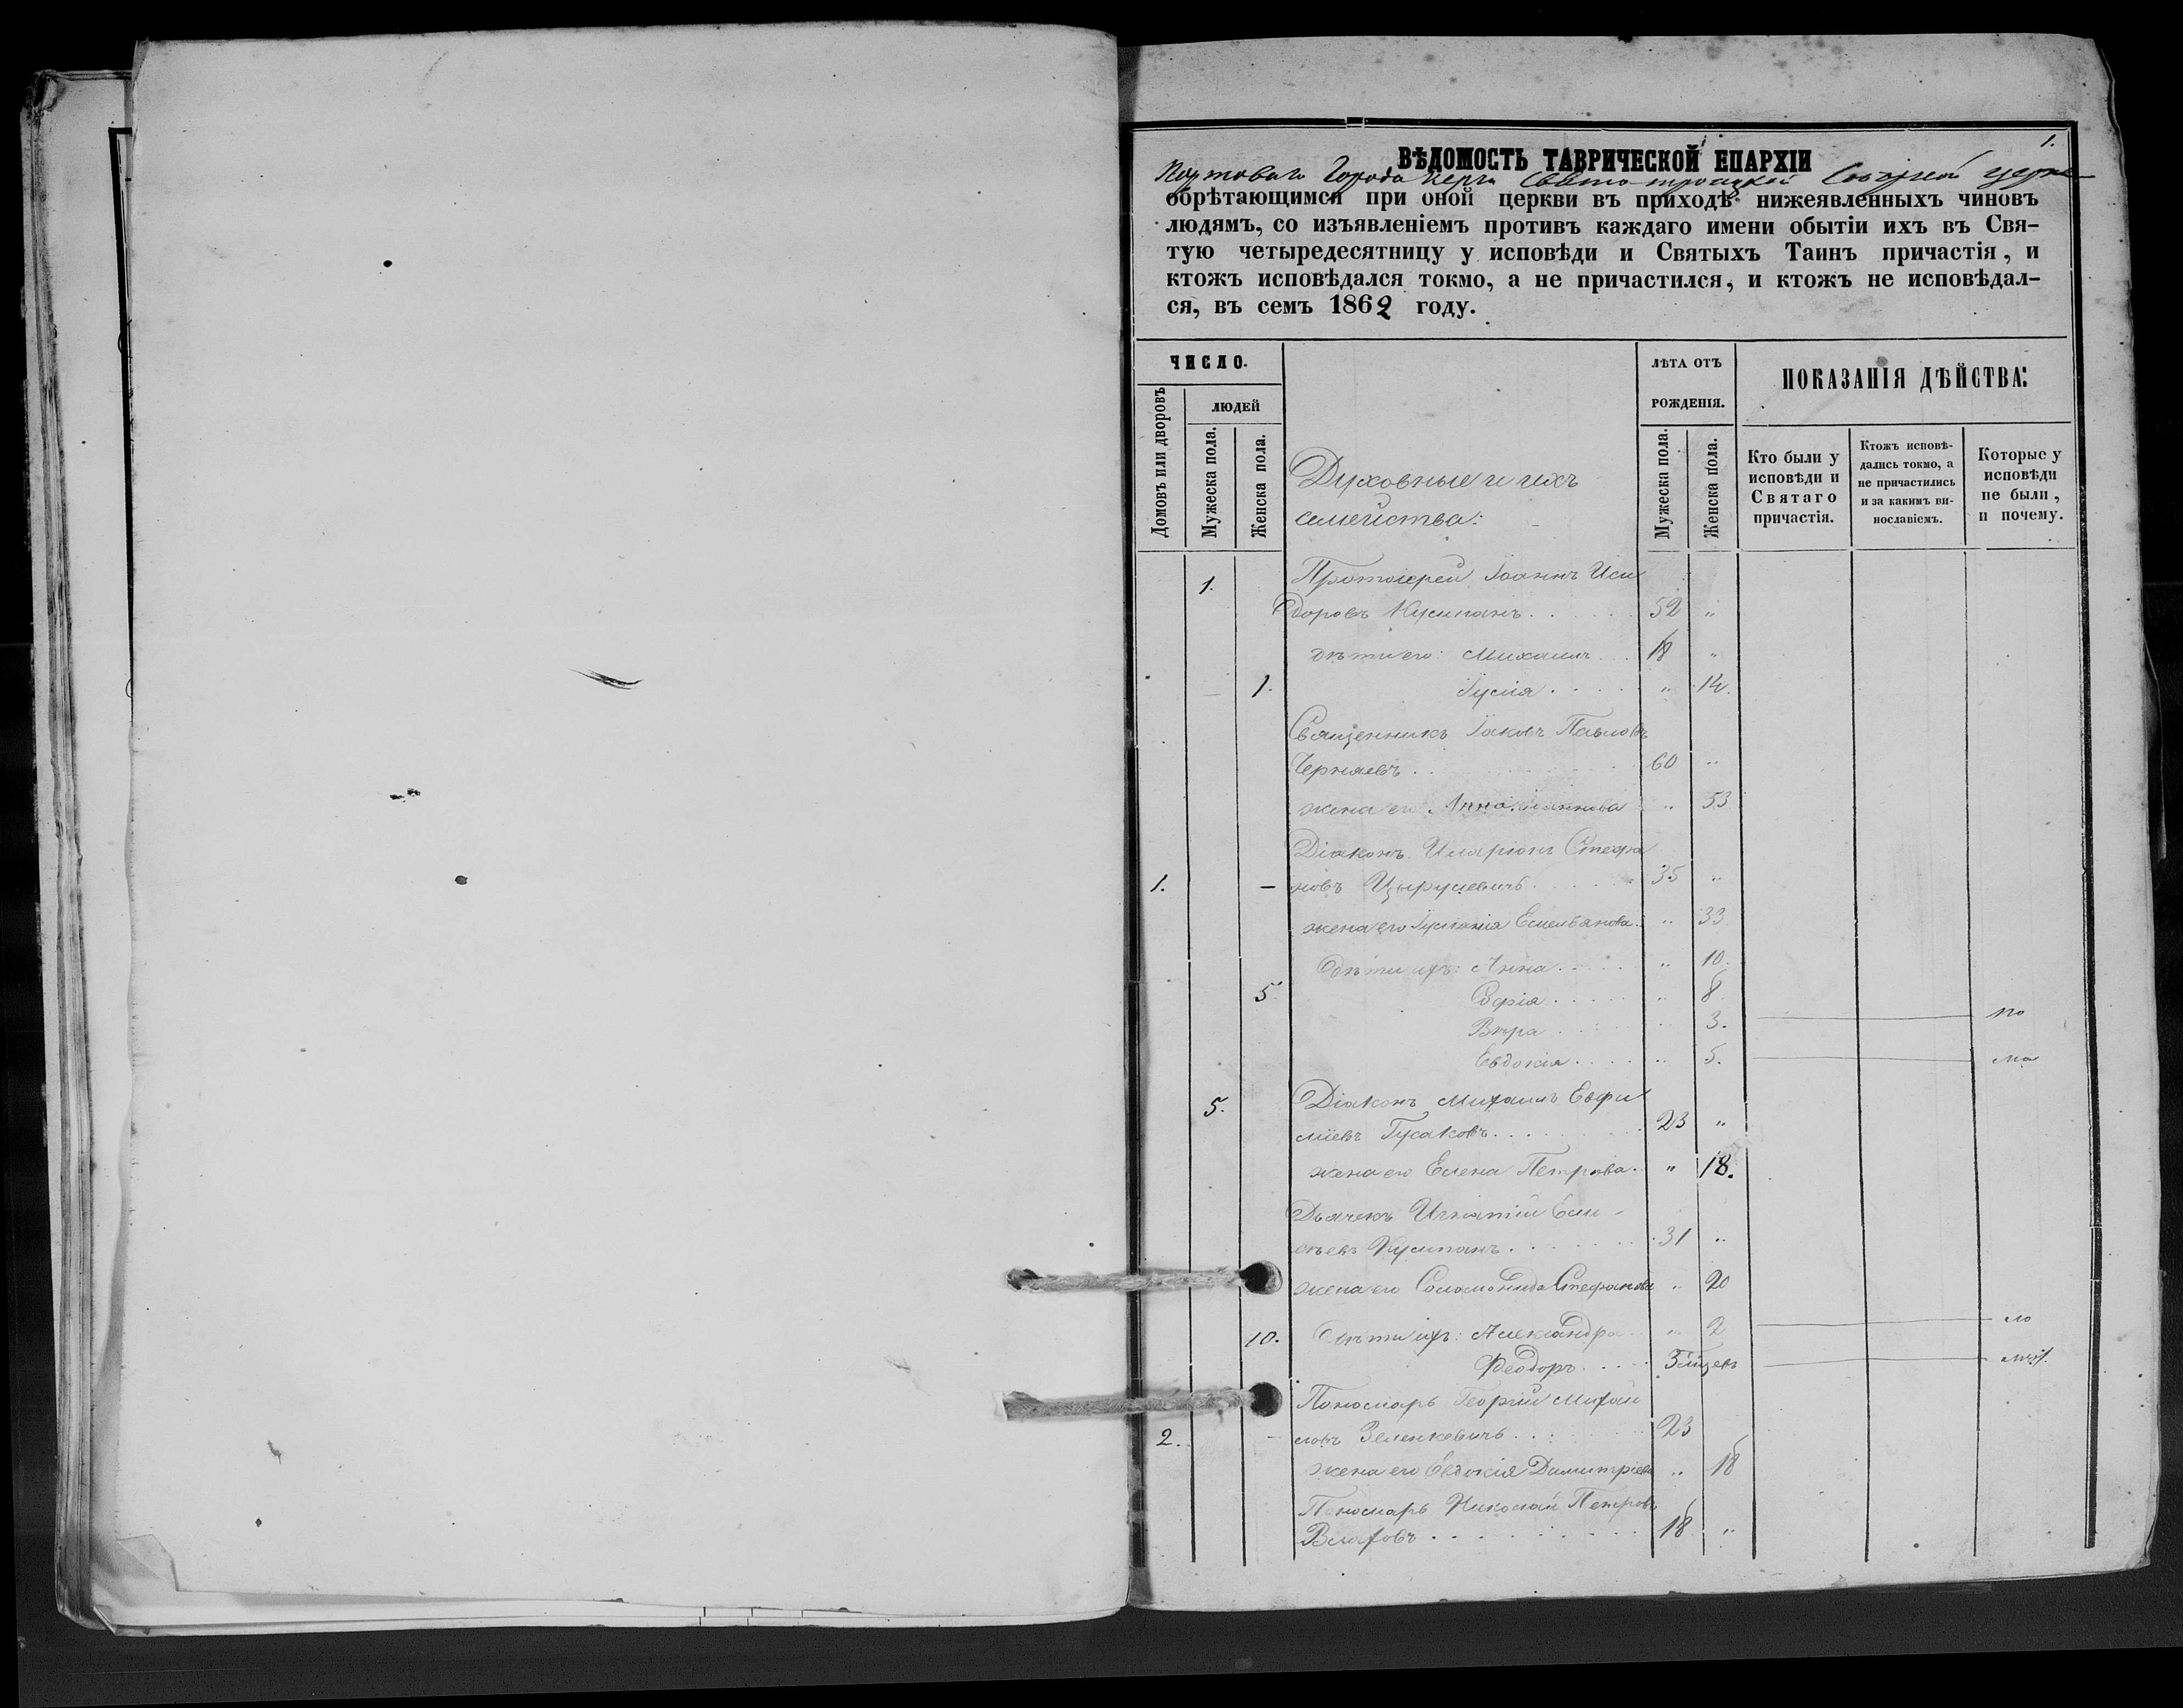 1.
ВѢДОМОСТЬ ТАВРИЧЕСКОЙ ЕПАРХІИ
Портоваго Города Керчи Свято-троицкой Соборной церкви
обрѣтающимся при оной церкви въ приходѣ нижеявленныхъ чиновъ
людямъ, со изъявленіемъ противъ каждаго имени обытіи ихъ въ Свя-
тую четыредесятницу у исповѣди и Святыхъ Таинъ причастія, и
ктожъ исповѣдался токмо, а не причастился, и ктожъ не исповѣдал-
ся, въ семъ 1862 году.
ЧИСЛО.
Домовъ или дворовъ
ЛЮДЕЙ
Мужеска пола.
Женска пола.
Духовные и ихъ
семейства:
ЛѢТА ОТЪ
РОЖДЕНІЯ.
Мужеска пола.
Женска пола.
ПОКАЗАНІЯ ДѢЙСТВА:
Кто были у
исповѣди и
Святаго
причастія.
Ктожъ исповѣ-
дались токмо, а
не причастились
и за какимъ ви-
нославіемъ.
Которые у
исповѣди
не были,
и почему.
1. Протоіерей Іоаннъ Иси
доровъ Кушпанъ . . . . 52 "
дѣти его: Михаилъ . . 18 "
1. Іулія . . . . " 14.
Священникъ Іаковъ Павловъ
Черняевъ . . 60 "
жена его Анна Іоаннова " 53
Діаконъ Иларіонъ Стефа
1. – новъ Цырулевичъ . . . . 35 "
жена его Іуліанія Емельянова . " 33
дѣти ихъ: Анна . . . . " 10.
5 Софія . . . . " 8.
Вѣра . . . . " 3. по
Евдокія . . . . " 5. ма
5. Діаконъ Михаилъ Евфи
міевъ Гусаковъ . . . . 23 "
жена его Елена Петрова . " 18.
Дьячекъ Игнатій Ели-
сѣевъ Кушпанъ . . . . 31 "
жена его Соломонида Стефанова " 20
10. дѣти ихъ: Александра . " 2 ло
Феодоръ . . . . 3 мѣсяцевъ
Пономарь Георгій Михаи
2. – ловъ Зеленкевичъ . . . 23
жена его Евдокія Димитріева " 18
Пономарь Николай Петровъ
Влаховъ . . . . . . 18 "